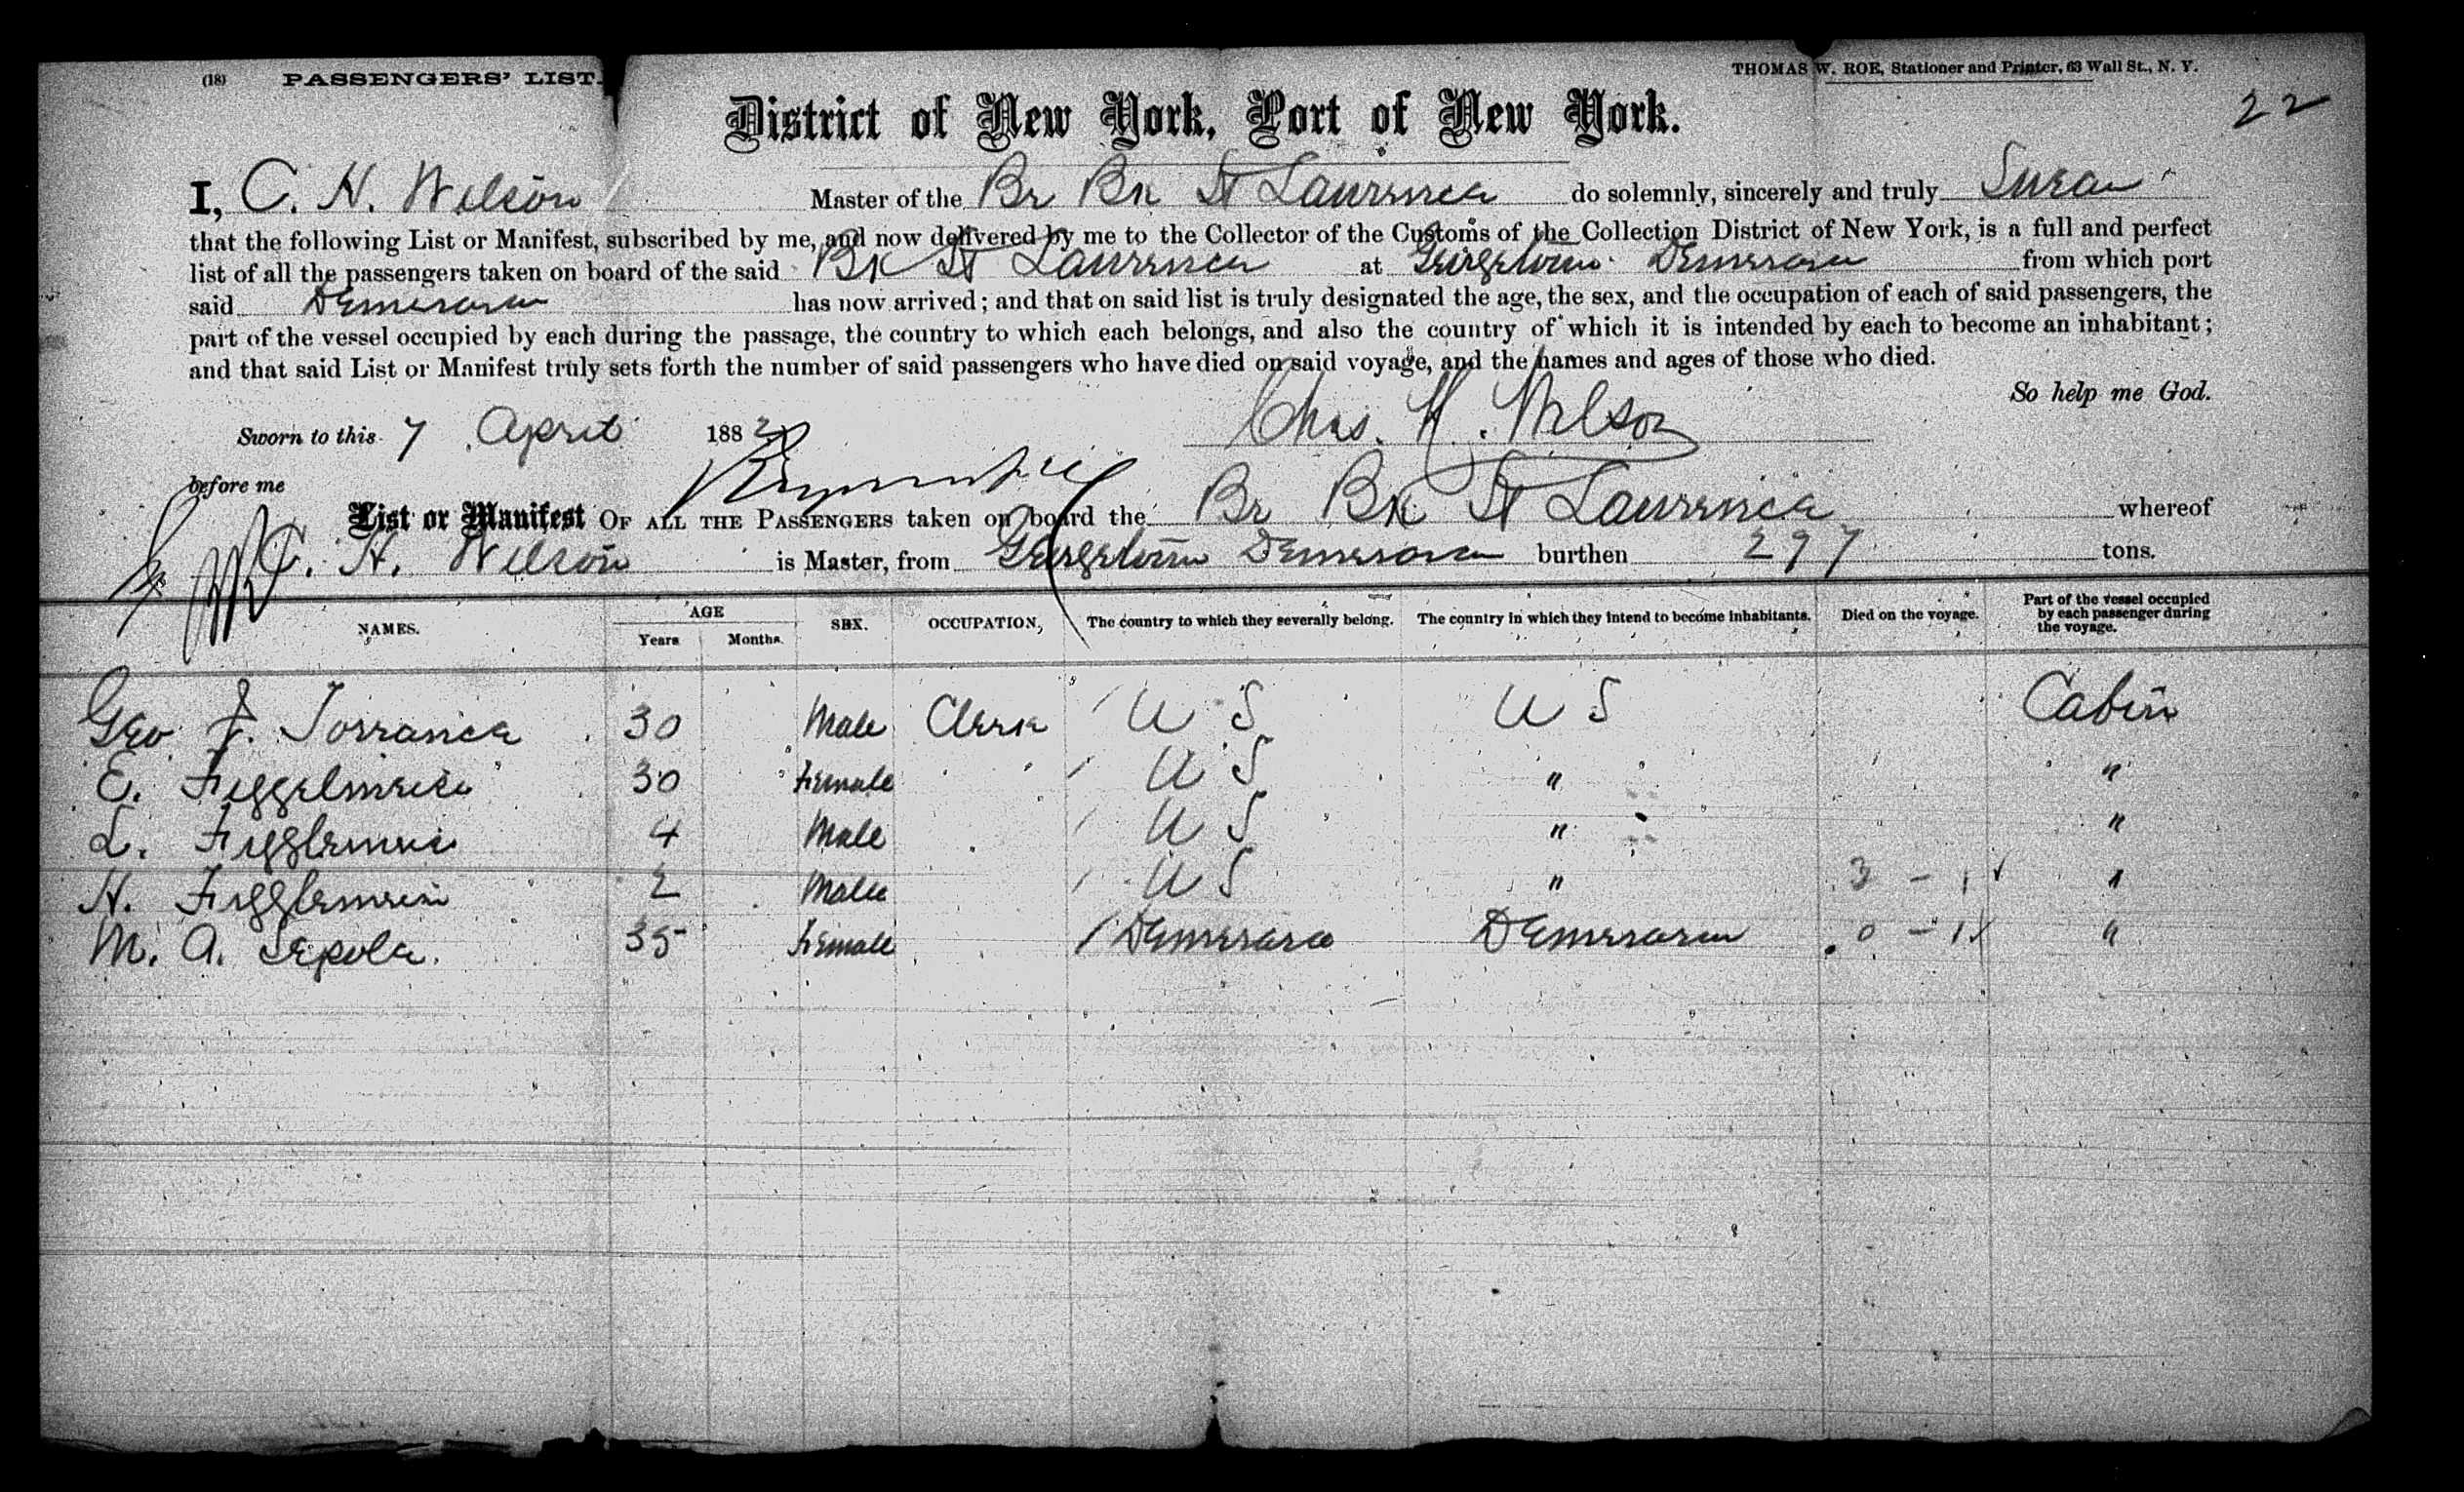 (18) PASSENGERS' LIST. THOMAS W. ROE, Stationer and Printer, 63 Wall St., N. Y.
22
District of New York, Port of New York.
I, C. H. Wilson Master of the Br Bk St Lawrence do solemnly, sincerely and truly Swear
that the following List or Manifest, subscribed by me, and now delivered by me to the Collector of the Customs of the Collection District of New York, is a full and perfect
list of all the passengers taken on board of the said Bk St Lawrence at Georgetown Demerara from which port
said Demerara has now arrived; and that on said list is truly designated the age, the sex, and the occupation of each of said passengers, the
part of the vessel occupied by each during the passage, the country to which each belongs, and also the country of which it is intended by each to become an inhabitant;
and that said List or Manifest truly sets forth the number of said passengers who have died on said voyage, and the names and ages of those who died.
So help me God.
Sworn to this 7 April 1882 Chas. H. Wilson
before me
List or Manifest OF ALL THE PASSENGERS taken on board the Br Bk St Lawrence whereof
C. H. Wilson is Master, from Georgetown Demerara burthen 297 tons.
NAMES. AGE Years Months. SEX. OCCUPATION, The country to which they severally belong. The country in which they intend to become inhabitants. Died on the voyage. Part of the vessel occupied by each passenger during the voyage.
Geo F. Torrance 30 Male Clerk U S U S Cabin
E. 30 Female U S " "
L. 4 Male U S " "
H. 2 Male U S " 3 - 1 "
M. A. Sepola. 35 Female Demerara Demerara 0 - 1 "